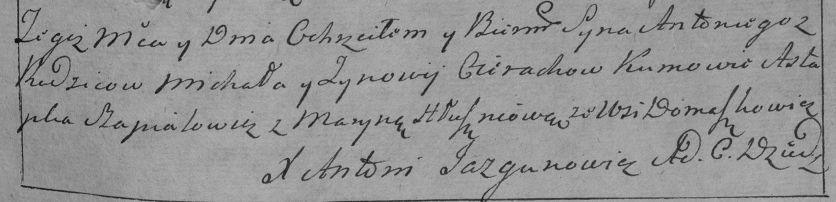 Tegoz Mca y Dnia Ochrzciłem y Bierm Syna Antoniego z
Rodzicow Michała y Zynowij Cierachow Kumowie Asta
pka Szapialowicz z Maryną Hłuszniową ze Wsi Domaszkowicz
X Antoni Jazgunowicz AD. C. Dziedz